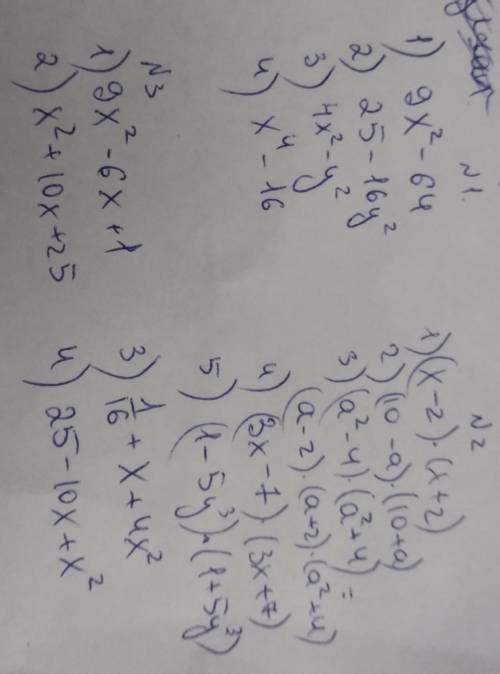 N1.
1) 9x² - 64
2) 25 - 16y²
3) 4x² - y²
4) x⁴ - 16
N2
1) (x - 2) · (x + 2)
2) (10 - a) · (10 + a)
3) (a² - 4) · (a² + 4) =
(a - 2) · (a + 2) · (a² + 4)
4) (3x - 7) · (3x + 7)
5) (1 - 5y³) · (1 + 5y³)
N3
1) 9x² - 6x + 1
2) x² + 10x + 25
3) 1/16 + x + 4x²
4) 25 - 10x + x²